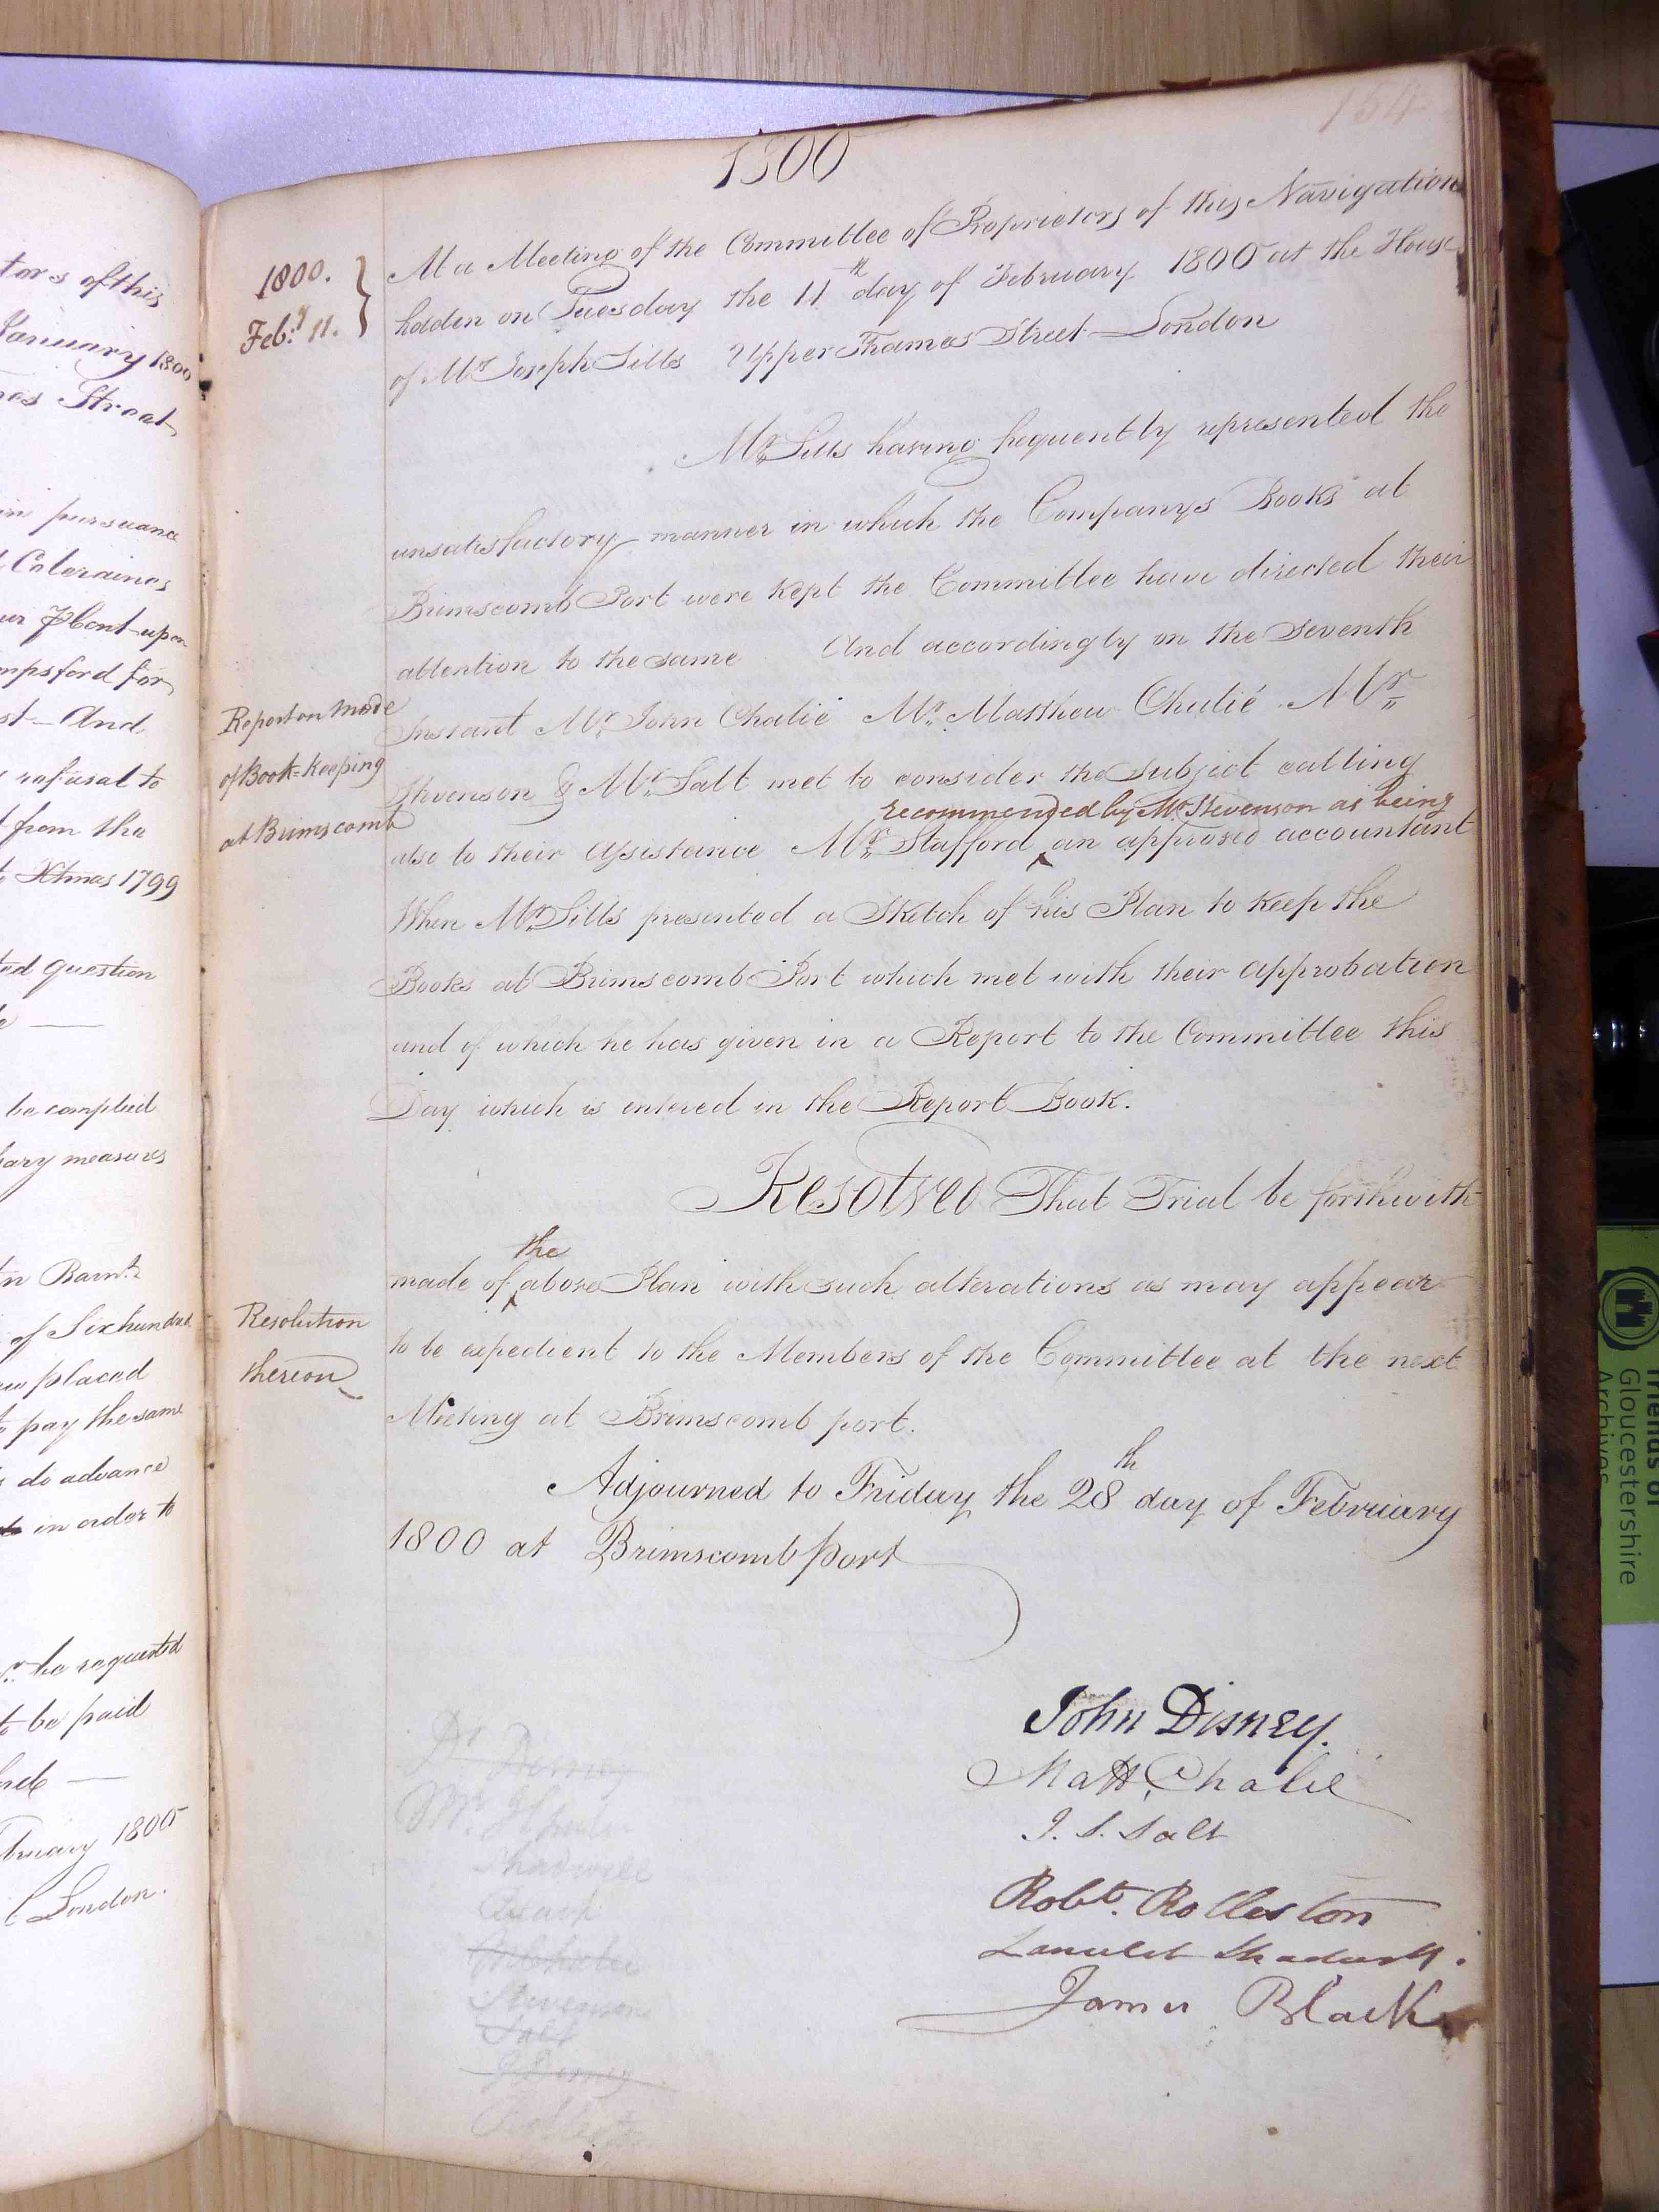 tors of this
January 1800
Street
in pursuance
Coleraines
upon
mpsford for
st — And
refusal to
from the
to Xtmas 1799
ted question
be complied
sary measures
in Barnt.
of Six hundred
placed
to pay the same
do advance
in order to
be requested
to be paid
bruary 1800
London.
154
1800
1800.
Feby. 11.
At a Meeting of the Committee of Proprietors of this Navigation
holden on Tuesday the 11th day of February 1800 at the House
of Mr Joseph Sills Upper Thames Street London
Mr. Sills having frequently represented the
unsatisfactory manner in which the Companys Books at
Brimscomb Port were kept the Committee have directed their
attention to the same And accordingly on the Seventh
Report on mode
of Book-keeping
at Brimscomb
Instant Mr. John Chalié Mr. Matthew Chalié Mr.
Stevenson & Mr. Salt met to consider the subject calling
recommended by Mr. Stevenson as being
also to their assistance Mr. Stafford ^ an approved accountant
When Mr. Sills presented a Sketch of his Plan to keep the
Books at Brimscomb Port which met with their approbation
and of which he has given in a Report to the Committee this
Day which is entered in the Report Book.
Resolved That Trial be forthwith
the
made of ^ above Plan with such alterations as may appear
Resolution
thereon
to be expedient to the Members of the Committee at the next
Meeting at Brimscomb port.
Adjourned to Friday the 28th day of February
1800 at Brimscomb port
John Disney.
Matt. Chalié
J. S. Salt
Robt. Rolleston
Lancelot Shadwell.
James Black
Dr Disney
Shadwell
Black
Stevenson
Salt
J Disney
Friends of
Gloucestershire
Archives